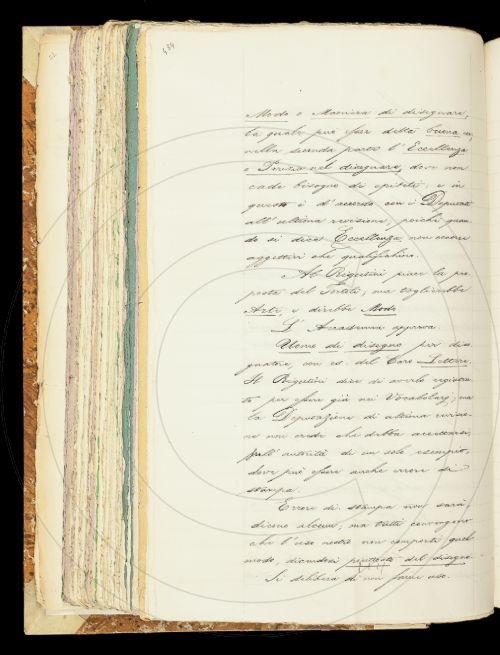 484
Modo o Maniera di disegnare,
la quale può esser detta buona co
nella seconda parte l'Eccellenza
o Pratica nel disegnare, dove non
cade bisogno di epiteti; e in
questo è d'accordo con i Deputati
all'ultima revisione, poichè quan
do si dice Eccellenza non occorre
aggettivi che qualifichino.
Al Rigutini piace la pro
posta del Tortoli, ma toglierebbe
Arte, e direbbe Modo.
L'Accademia approva.
Uomo di disegno per dise
gnatore, con es. del Caro Lettere.
Il Rigutini dice di averlo registra
to per essere già nei Vocabolarj; ma
la Deputazione di ultima revisio
ne non crede che debba accettarsi
sull'autorità di un solo esempio,
dove può essere anche errore di
stampa.
Errore di stampa non sarà,
dicono alcuni; ma tutti convengono
che l'uso nostro non comporta quel
modo, dicendosi piuttosto del disegno.
Si delibera di non farne uso.